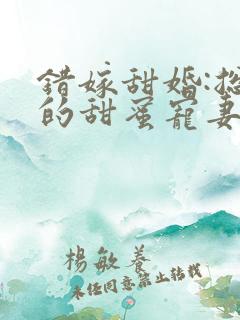 錯嫁甜婚:
的甜蜜寵妻
楊敏養
未經同意禁止轉載